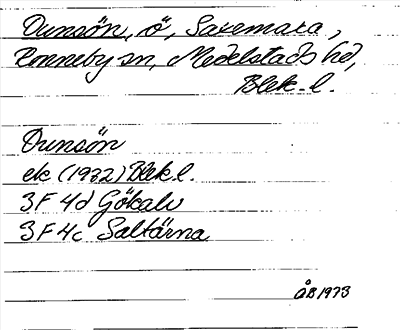 Dunsön, ö, Saxemara,
Ronneby sn, Medelstads hd,
Blek. l.
Dunsön
ek (1932) Blek l.
3F 4d Gökalv
3F 4c Saltärna
ÅB 1973